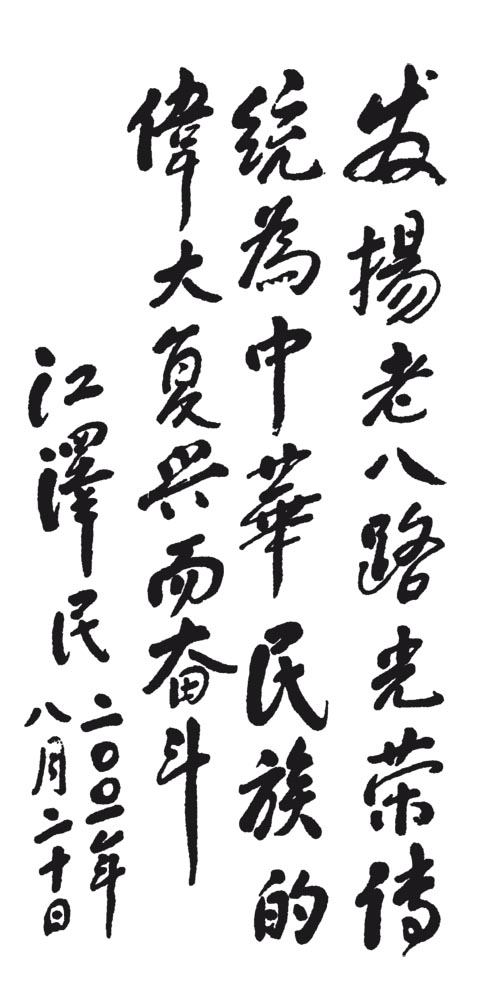 发揚老八路光荣傳
統為中華民族的
偉大复兴而奋斗
江澤民
二〇〇一年
八月二十日